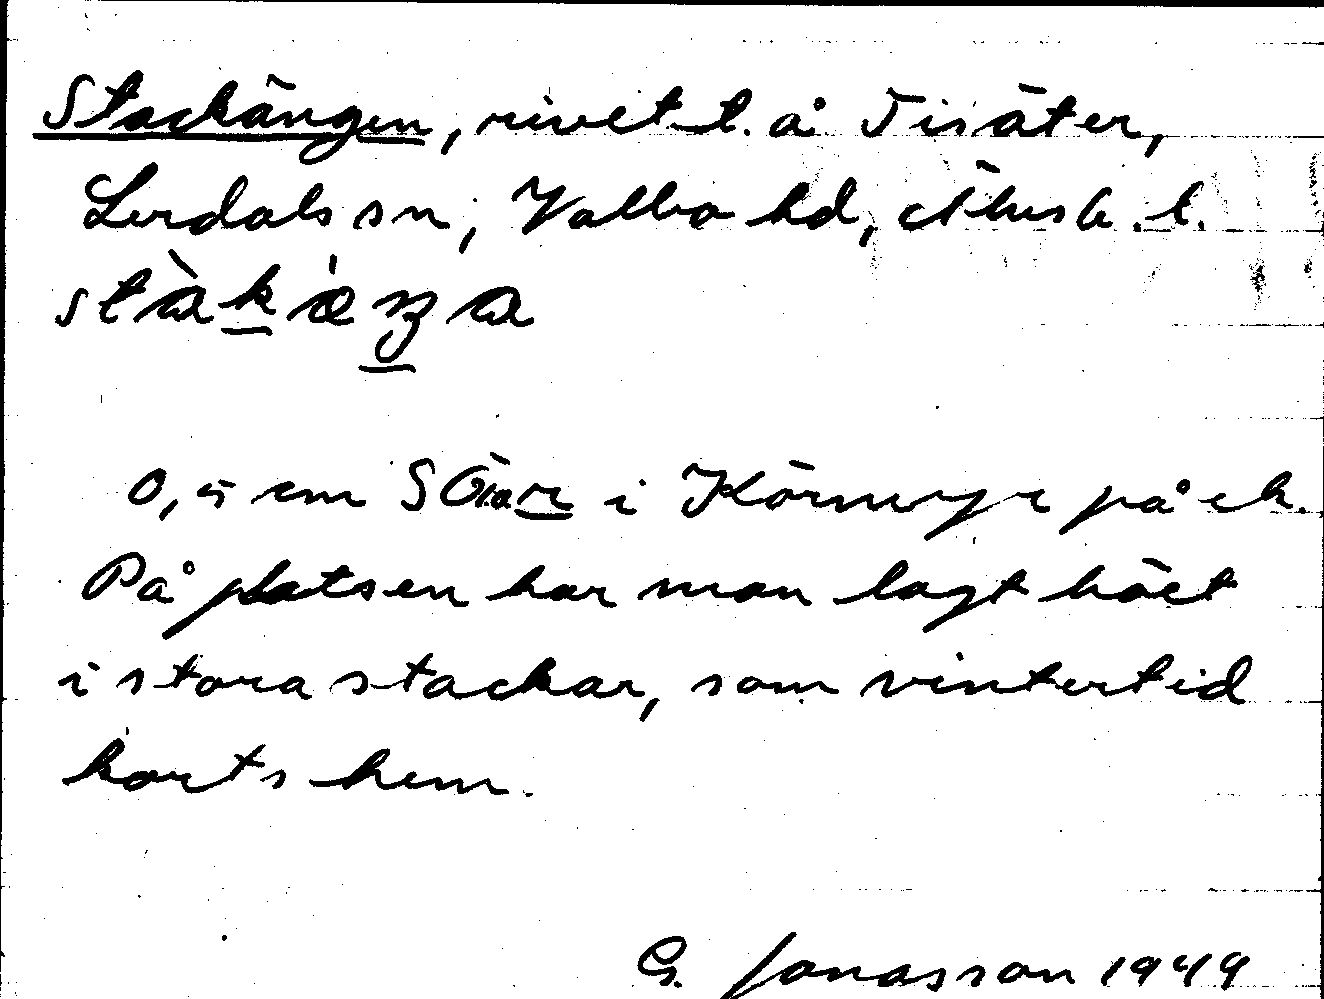 Stackängen, rivet t. å Tisäter,
Lerdals sn, Valbo hd, Älvsb. l.
stàkæŋa
0,5 cm SO i Körnmyr på ek.
På platsen har man lagt höet
i stora stackar, som vintertid
körts hem.
G. Jonasson 1949